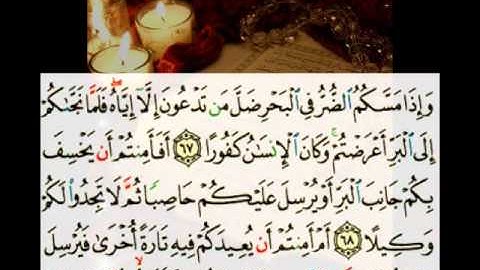 وَإِذَا مَسَّكُمُ ٱلضُّرُّ فِى ٱلْبَحْرِ ضَلَّ مَن تَدْعُونَ إِلَّآ إِيَّاهُ ۖ فَلَمَّا نَجَّىٰكُمْ
إِلَى ٱلْبَرِّ أَعْرَضْتُمْ ۚ وَكَانَ ٱلْإِنسَٰنُ كَفُورًا ٦٧ أَفَأَمِنتُمْ أَن يَخْسِفَ
بِكُمْ جَانِبَ ٱلْبَرِّ أَوْ يُرْسِلَ عَلَيْكُمْ حَاصِبًا ثُمَّ لَا تَجِدُوا۟ لَكُمْ
وَكِيلًا ٦٨ أَمْ أَمِنتُمْ أَن يُعِيدَكُمْ فِيهِ تَارَةً أُخْرَىٰ فَيُرْسِلَ